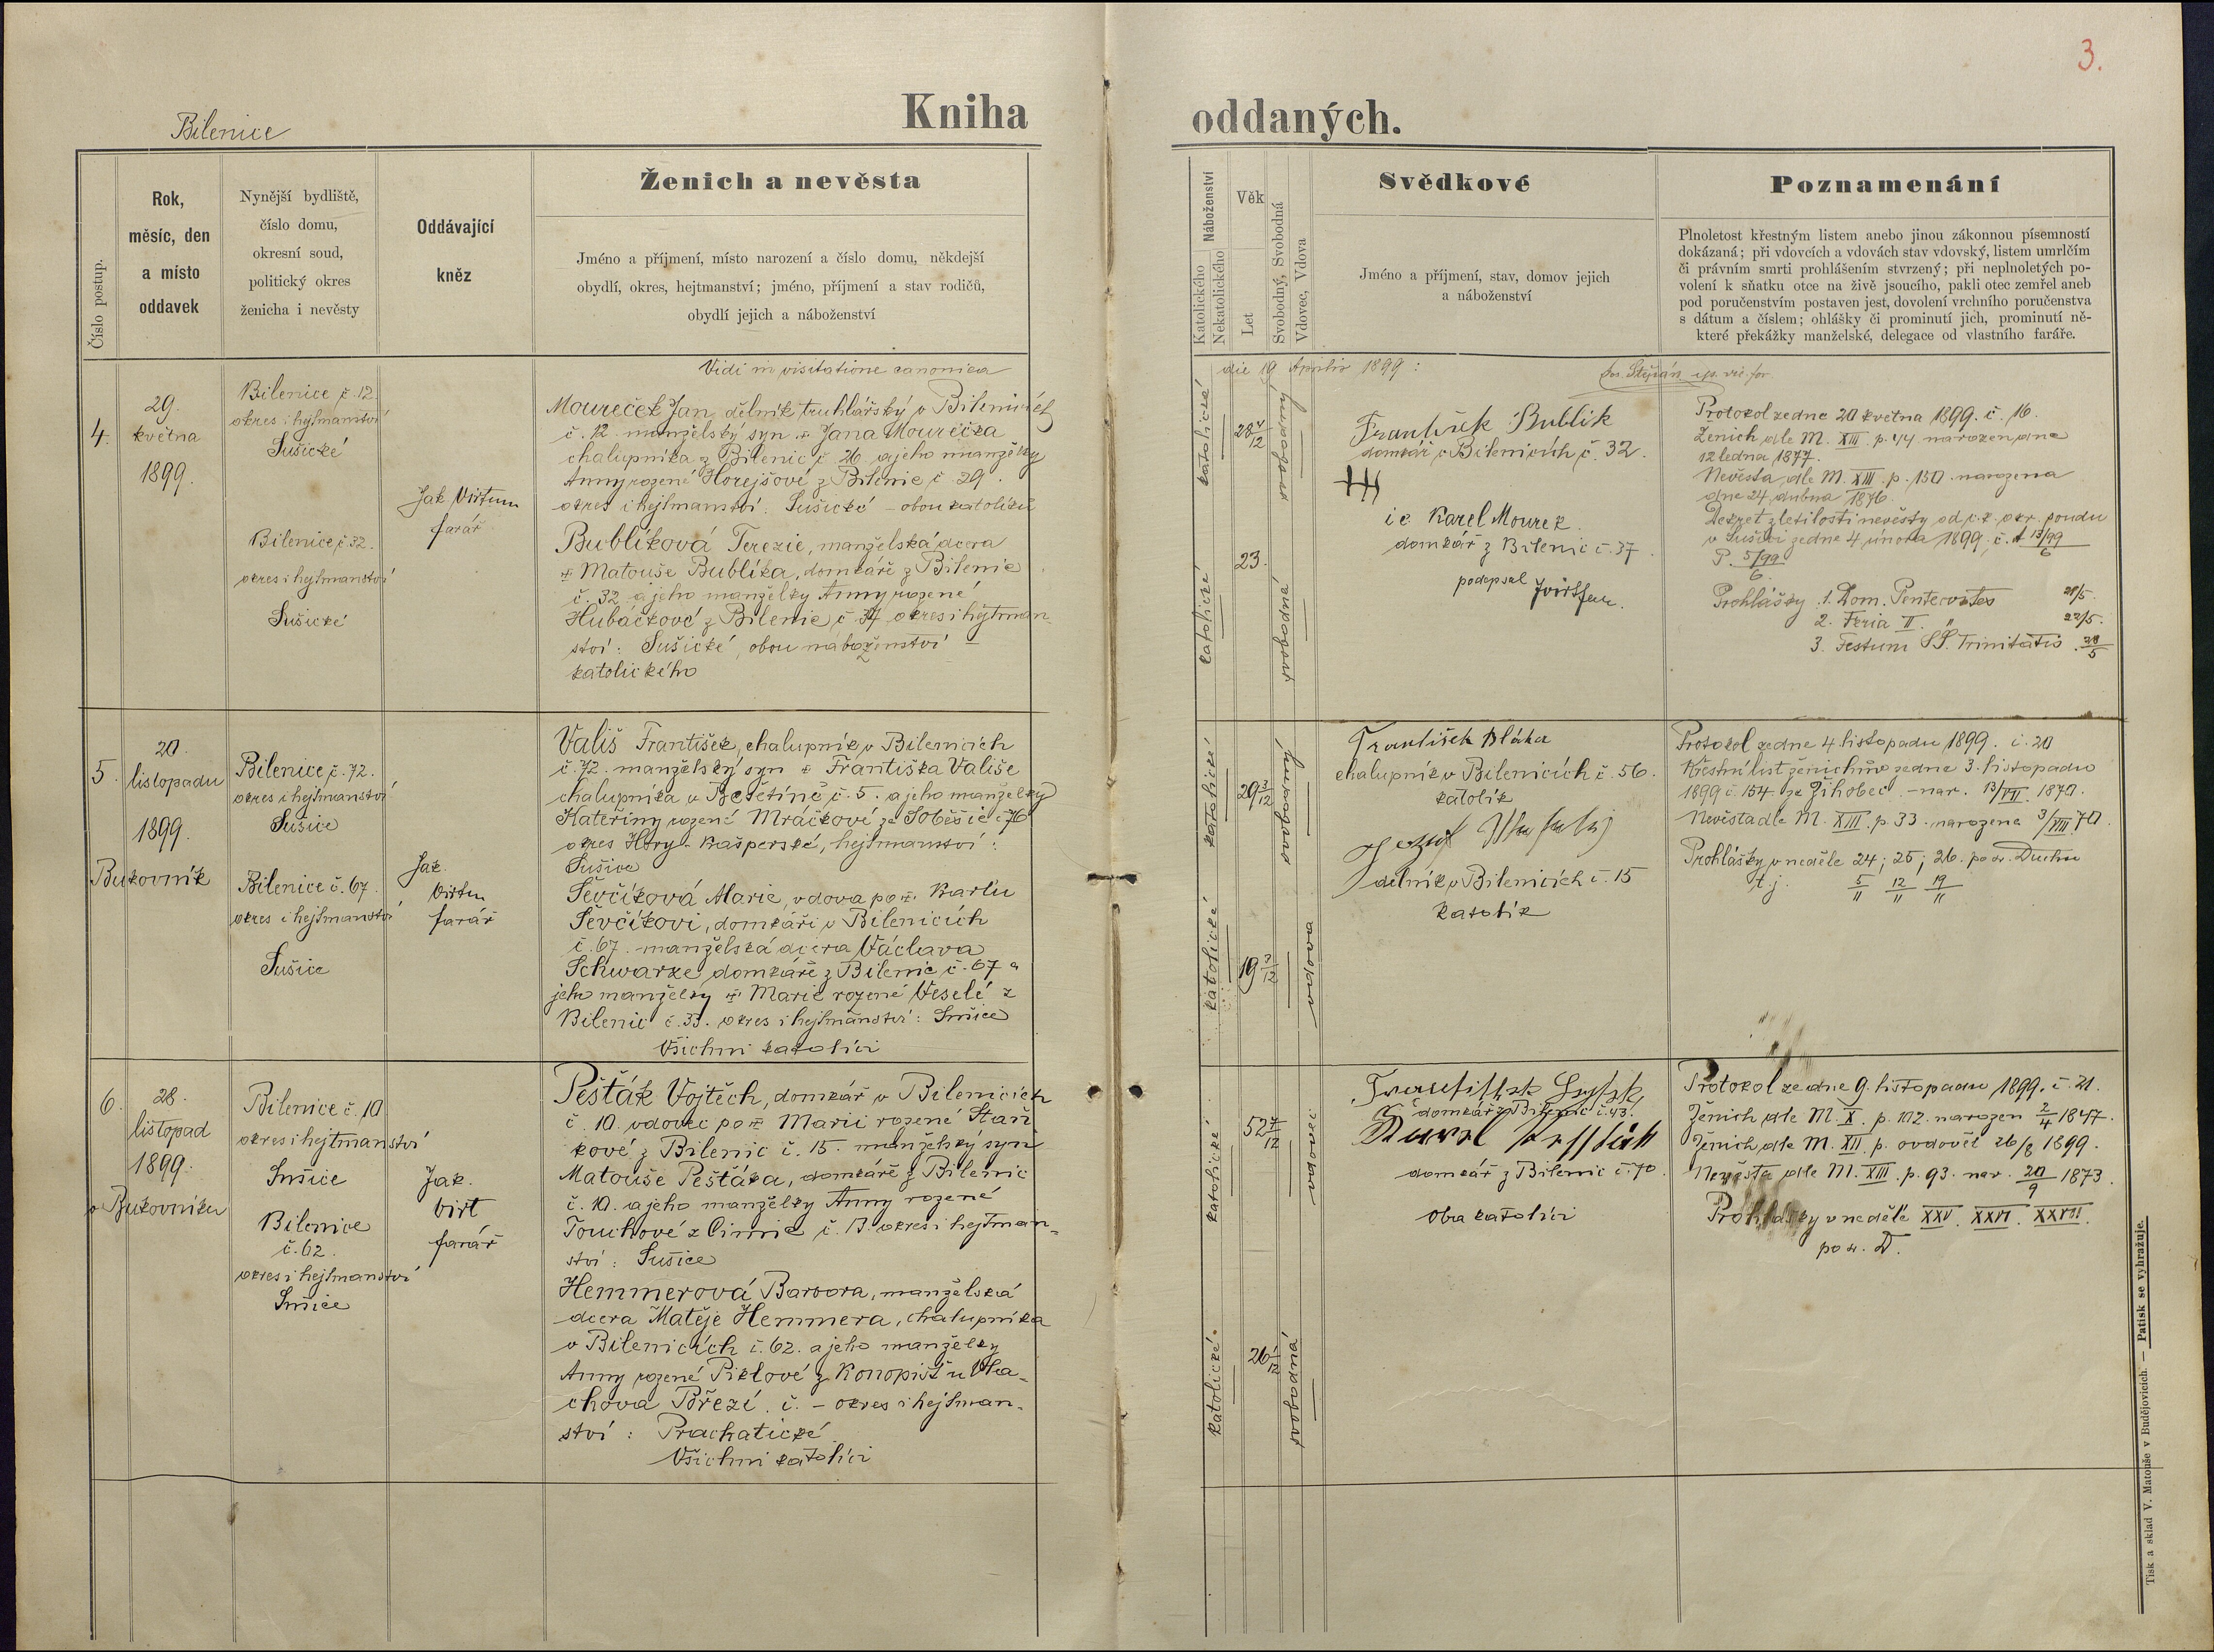 3.
Bilenice
Kniha oddaných.
Číslo postup.
Rok,
měsíc, den
a místo
oddavek
Nynější bydliště,
číslo domu,
okresní soud,
politický okres
ženicha i nevěsty
Oddávající
kněz
Ženich a nevěsta
Jméno a příjmení, místo narození a číslo domu, někdejší
obydlí, okres, hejtmanství; jméno, příjmení a stav rodičů,
obydlí jejich a náboženství
Náboženství
Katolického
Nekatolického
Věk
Let
Svobodný, Svobodná
Vdovec, Vdova
Svědkové
Jméno a příjmení, stav, domov jejich
a náboženství
Poznamenání
Plnoletost křestným listem anebo jinou zákonnou písemností
dokázaná; při vdovcích a vdovách stav vdovský, listem umrlčím
či právním smrti prohlášením stvrzený; při neplnoletých po-
volení k sňatku otce na živě jsoucího, pakli otec zemřel aneb
pod poručenstvím postaven jest, dovolení vrchního poručenstva
s dátum a číslem; ohlášky či prominutí jich, prominutí ně-
které překážky manželské, delegace od vlastního faráře.
Vidi in visitatione canonica die 19 Aprilis 1899:
4.
29.
května
1899.
Bilenice č. 12
okres i hejtmanství
Sušické
Bilenice č. 32.
okres i hejtmanství
Sušické
Jak Virt
farář
Moureček Jan, dělník truhlářský v Bilenicích
č. 12. manželský syn Jana Mourečka
chalupníka z Bilenic č 26 a jeho manželky
Anny rozené Horejšové z Bilenic č 29.
okres i hejtmanství: Sušické – obou katolíků
Bublíková Terezie, manželská dcera
Matouše Bublíka, domkáře z Bilenic
č. 32 a jeho manželky Anny rozené
Hubáčkové z Bilenic č 37 okres i hejtman-
ství: Sušické, obou náboženství –
katolického
katolické
28 4/12
svobodný
katolické
23.
svobodná
František Bublik
domkář v Bilenicích č. 32.
+++
Karel Mourek.
domkář z Bilenic č. 37
podepsal JVirt far.
Protokol ze dne 20 května 1899. č. 16.
Ženich dle M. XIII. p. 44 narozen dne
12 ledna 1877.
Nevěsta dle M. XIII. p. 150. narozena
dne 24. dubna 1876.
Dekret zletilosti nevěsty od c. k. okr. soudu
v Sušici ze dne 4 února 1899. č. 13/99
P. 5/99
6.
Prohlášky 1. Dom. Pentecostes 21/5.
2. Feria II. " 22/5.
3. Festum SS. Trinitatis. 28/5
5.
20.
listopadu
1899.
Bukovník
Bilenice č. 72.
okres i hejtmanství
Sušice
Bilenice č. 67.
okres i hejtmanství
Sušice
Jak.
Virt
farář
Vališ František, chalupník v Bilenicích
č. 72. manželský syn Františka Vališe
chalupníka v Bešetíně č. 5. a jeho manželky
Kateřiny rozené Mráčkové ze Soběšic č 76
okres Hory-Kašperské, hejtmanství:
Sušice
Ševčíková Marie, vdova po Karlu
Ševčíkovi, domkáři v Bilenicích
č. 67. manželská dcera Václava
Schwarze, domkáře z Bilenic č. 67 a
jeho manželky Marie rozené Veselé z
Bilenic č. 33. okres i hejtmanství: Sušice
Všichni katolíci
katolické
29 3/12
svobodný
katolické
19 3/12
vdova
František Bláha
chalupník v Bilenicích č. 56.
katolík
Jozef
dělník v Bilenicích č. 15
katolík
Protokol ze dne 4. listopadu 1899. č. 20
Křestní list ženichův ze dne 3. listopadu
1899 č. 154. ze Žihobec – nar. 13/VII. 1870.
Nevěsta dle M. XIII. p. 33. narozena 3/VIII 70.
Prohlášky v neděle 24; 25; 26. po sv. Duchu
t. j. 5/11 12/11 19/11
6.
28.
listopad
1899.
v Bukovníku
Bilenice č. 10
okres i hejtmanství
Sušice
Bilenice
č. 62.
okres i hejtmanství
Sušice
Jak.
Virt
farář
Pešťák Vojtěch, domkář v Bilenicích
č. 10. vdovec po Marii rozené Staň-
kové z Bilenic č. 15. manželský syn
Matouše Pešťáka, domkáře z Bilenic
č. 10. a jeho manželky Anny rozené
Touchové z Čimic č. 13 okres i hejtman-
ství: Sušice
Hemmerová Barbora, manželská
dcera Matěje Hemmera, chalupníka
v Bilenicích č. 62. a jeho manželky
Anny rozené Piklové z Konopišť u Vla-
chova Březí. č. – okres i hejtman-
ství: Prachatické
Všichni katolíci
katolické
52 7/12
vdovec
katolické.
26 1/12
svobodná
František
domkář z Bilenic č. 43.
Karel Pešťák
domkář z Bilenic č. 70.
oba katolíci
Protokol ze dne 9. listopadu 1899. č. 21.
Ženich dle M. X. p. 112. narozen 2/4 1847.
Ženich dle M. XII. p. ovdověl 26/8 1899.
Nevěsta dle M. XIII. p. 93. nar. 20/9 1873.
Prohlášky v neděle XXV. XXVI. XXVII.
po sv. D.
Tisk a sklad V. Matouše v Budějovicích. — Patisk se vyhražuje.